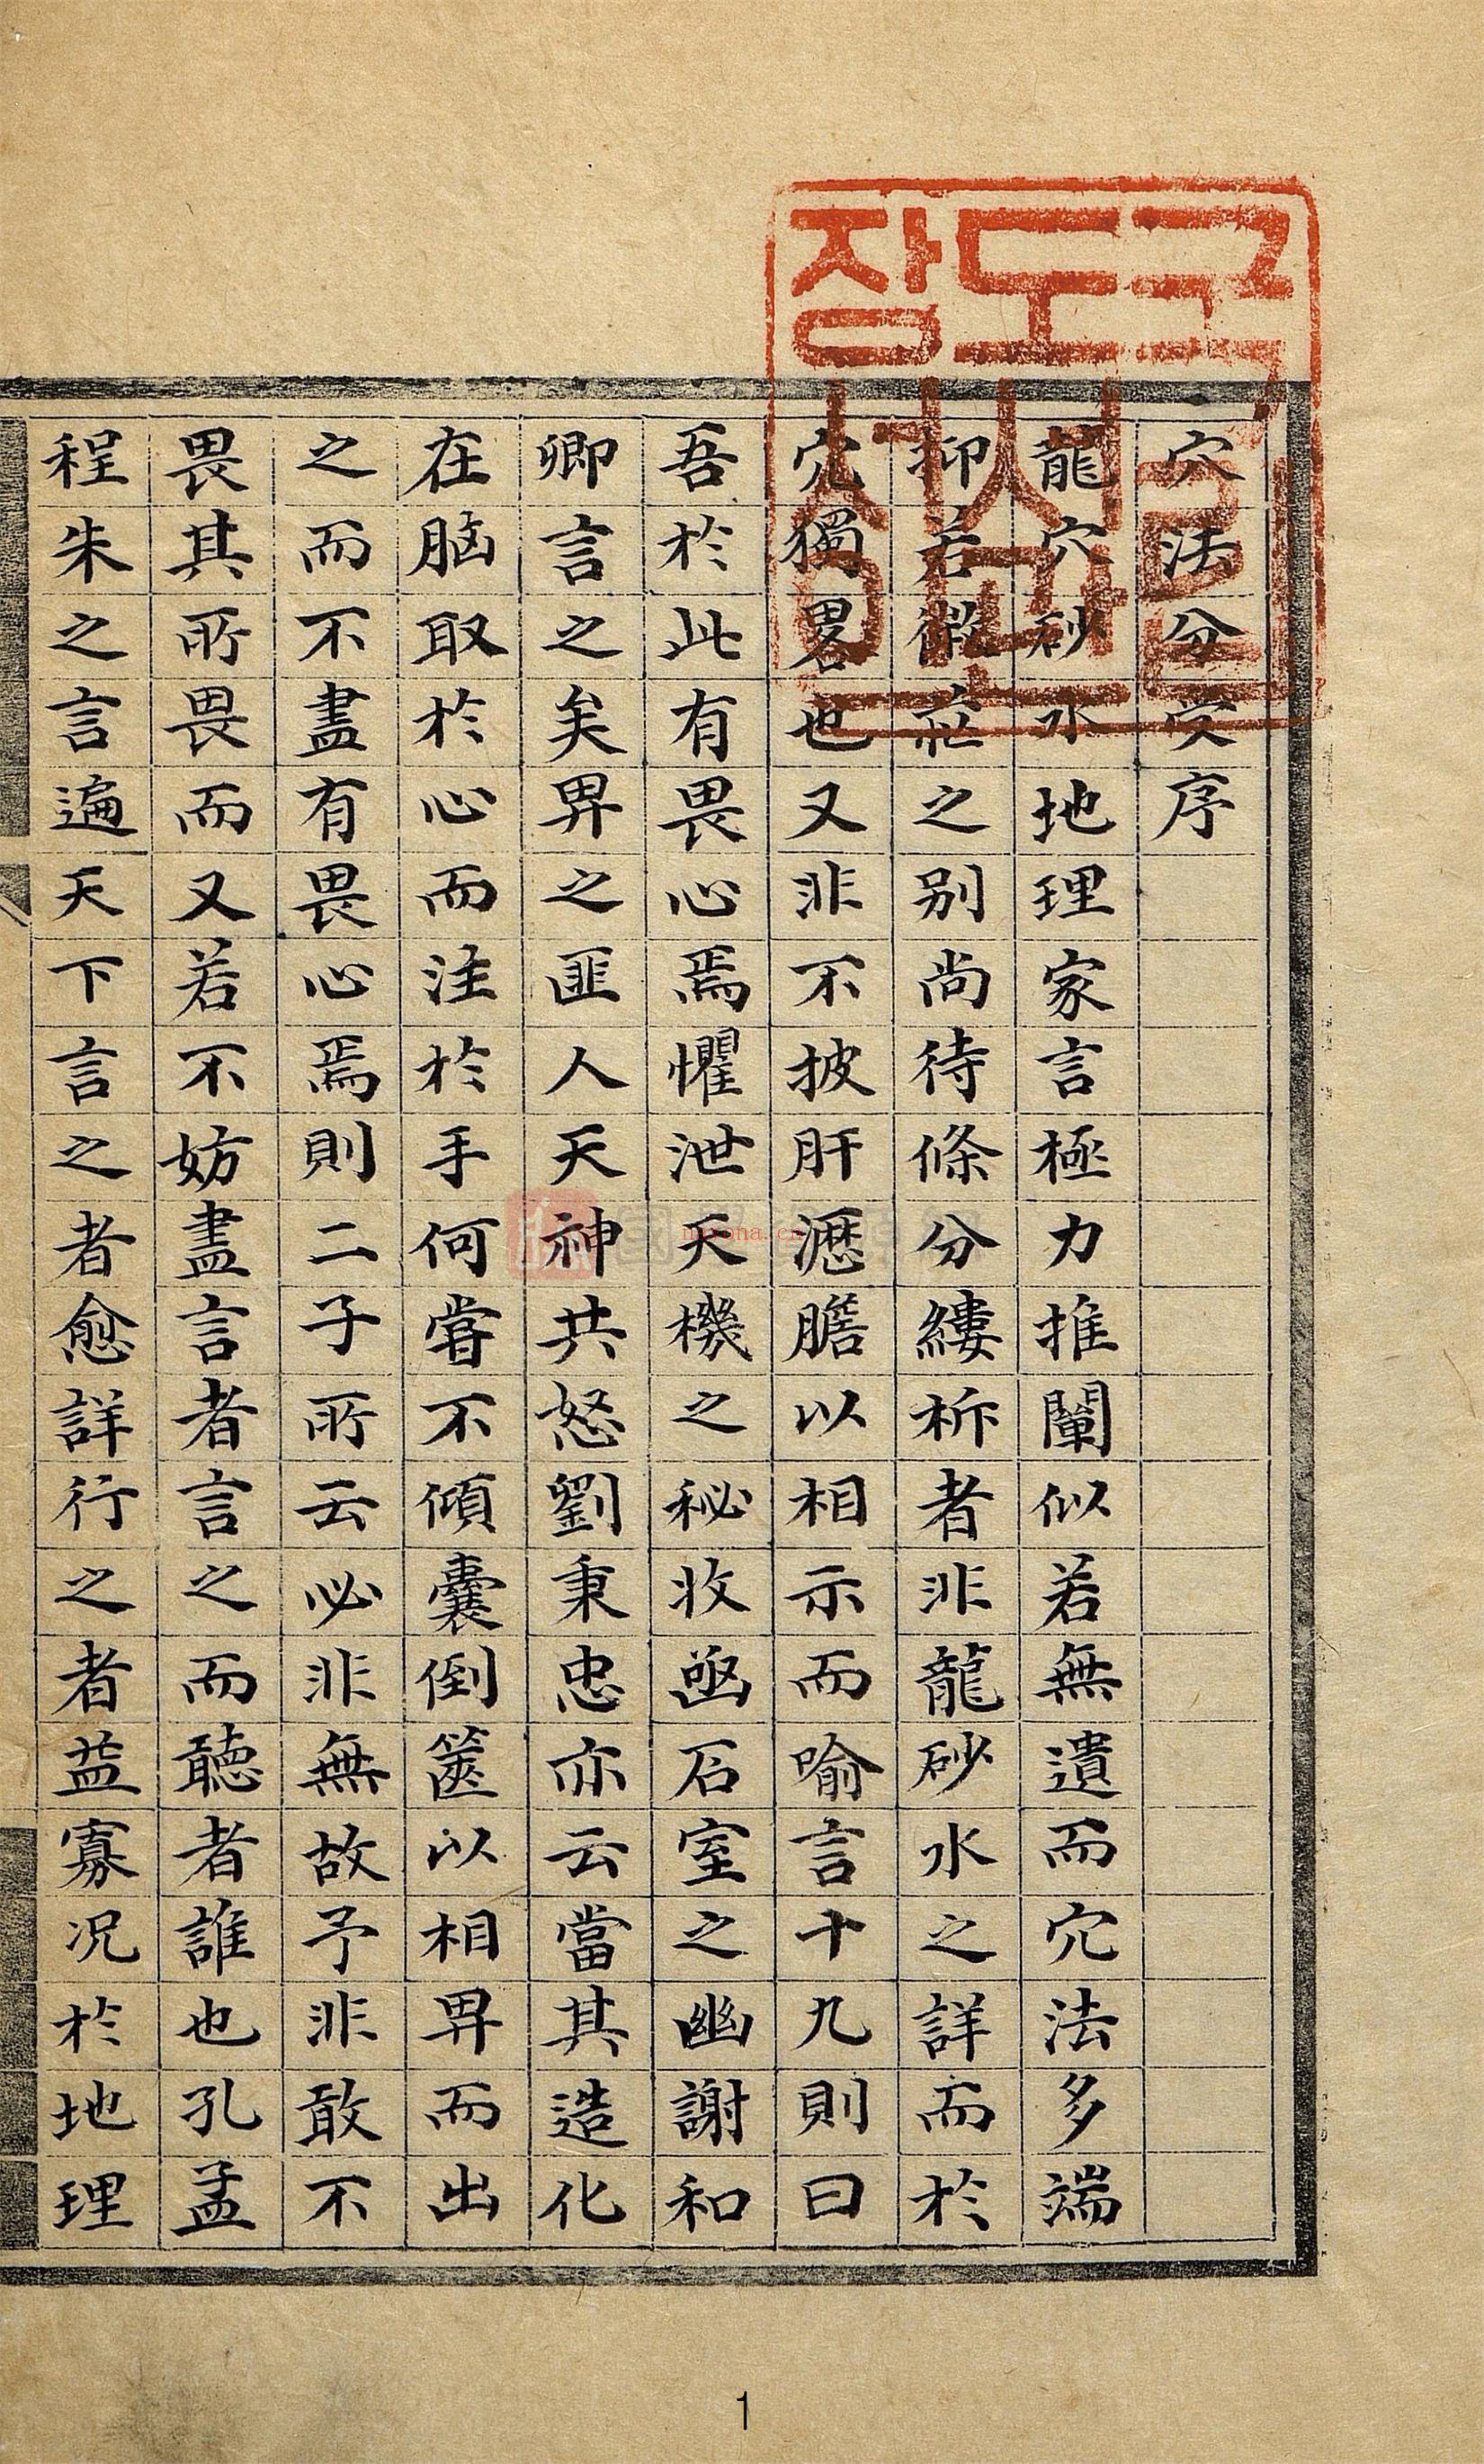 국도장
립서산
관인
穴法分受序
龍穴砂水地理家言極力推闡似若無遺而穴法多端
抑若微茫之別尚待條分縷析者非龍砂水之詳而於
穴獨畧也又非不披肝瀝膽以相示而喻言十九則曰
吾於此有畏心焉懼泄天機之秘收函石室之幽謝和
卿言之矣畀之匪人天神共怒劉秉忠亦云當其造化
在脑取於心而注於手何嘗不傾囊倒篋以相畀而出
之而不盡有畏心焉則二子所云必非無故予非敢不
畏其所畏而又若不妨盡言者言之而聽者誰也孔孟
程朱之言遍天下言之者愈詳行之者益寡况於地理
1